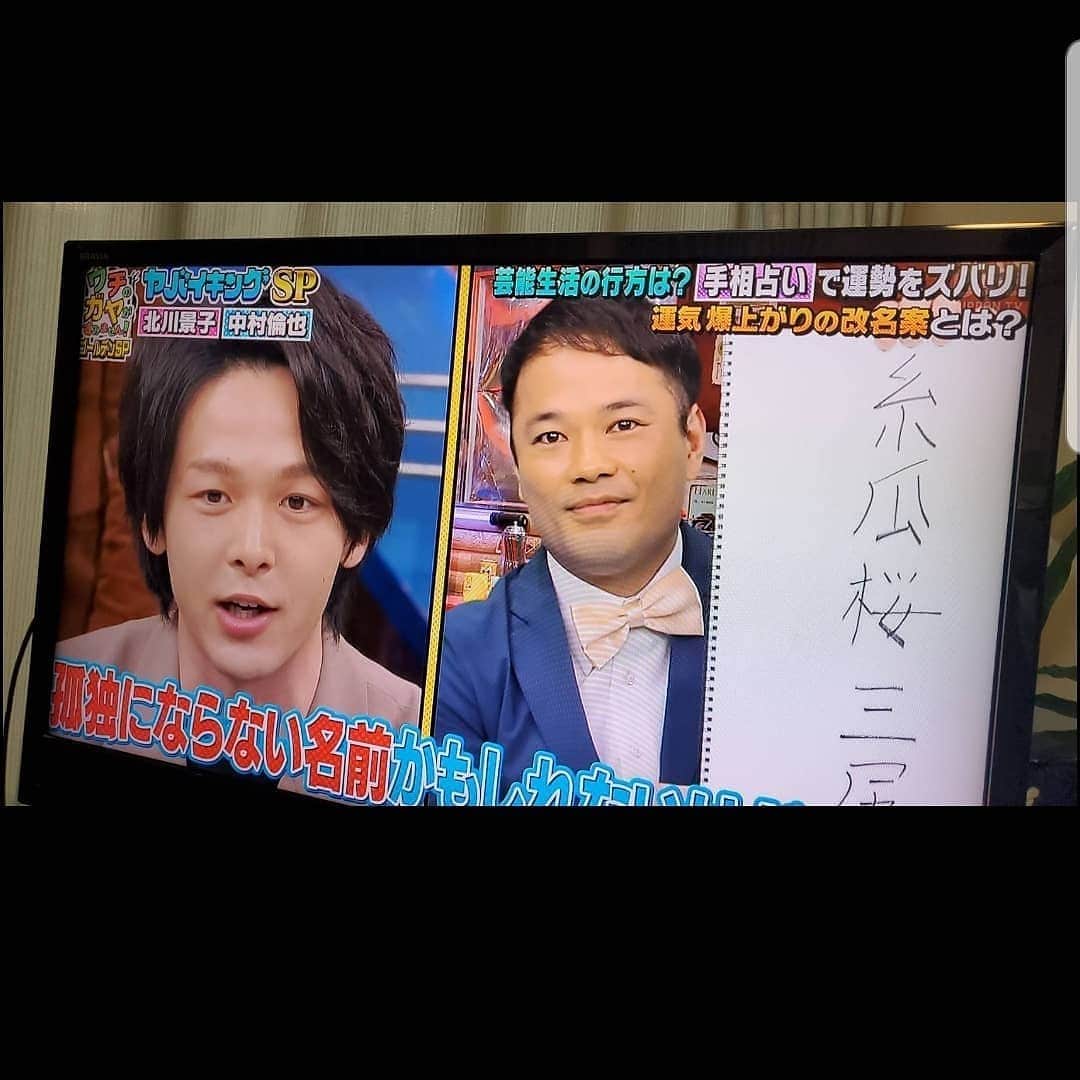 BRAVIA
ウチのガヤが
すみません!
ゴールデンSP
ヤバイキングSP
北川景子 中村倫也
芸能生活の行方は? 手相占いで運勢をズバリ!
運気 爆上がりの改名案とは?
NIPPON TV
糸瓜桜 三屋
孤独にならない名前かもしれない